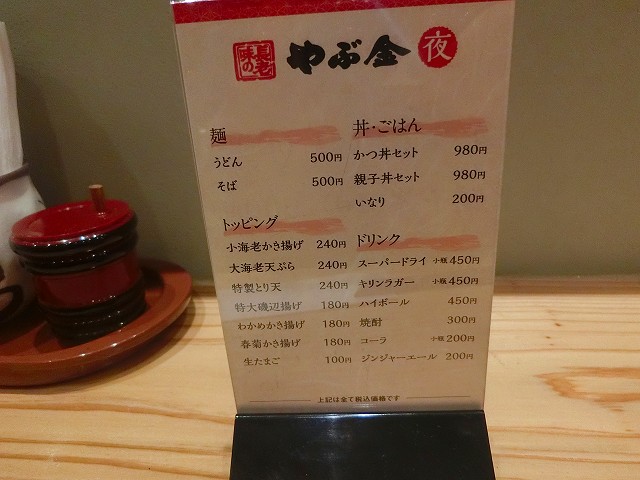 味の長老 やぶ金 夜
麺
うどん 500円
そば 500円
トッピング
小海老かき揚げ 240円
大海老天ぷら 240円
特製とり天 240円
特大磯辺揚げ 180円
わかめかき揚げ 180円
春菊かき揚げ 180円
生たまご 100円
丼・ごはん
かつ丼セット 980円
親子丼セット 980円
いなり 200円
ドリンク
スーパードライ 小瓶 450円
キリンラガー 小瓶 450円
ハイボール 450円
焼酎 300円
コーラ 小瓶 200円
ジンジャーエール 200円
上記は全て税込価格です